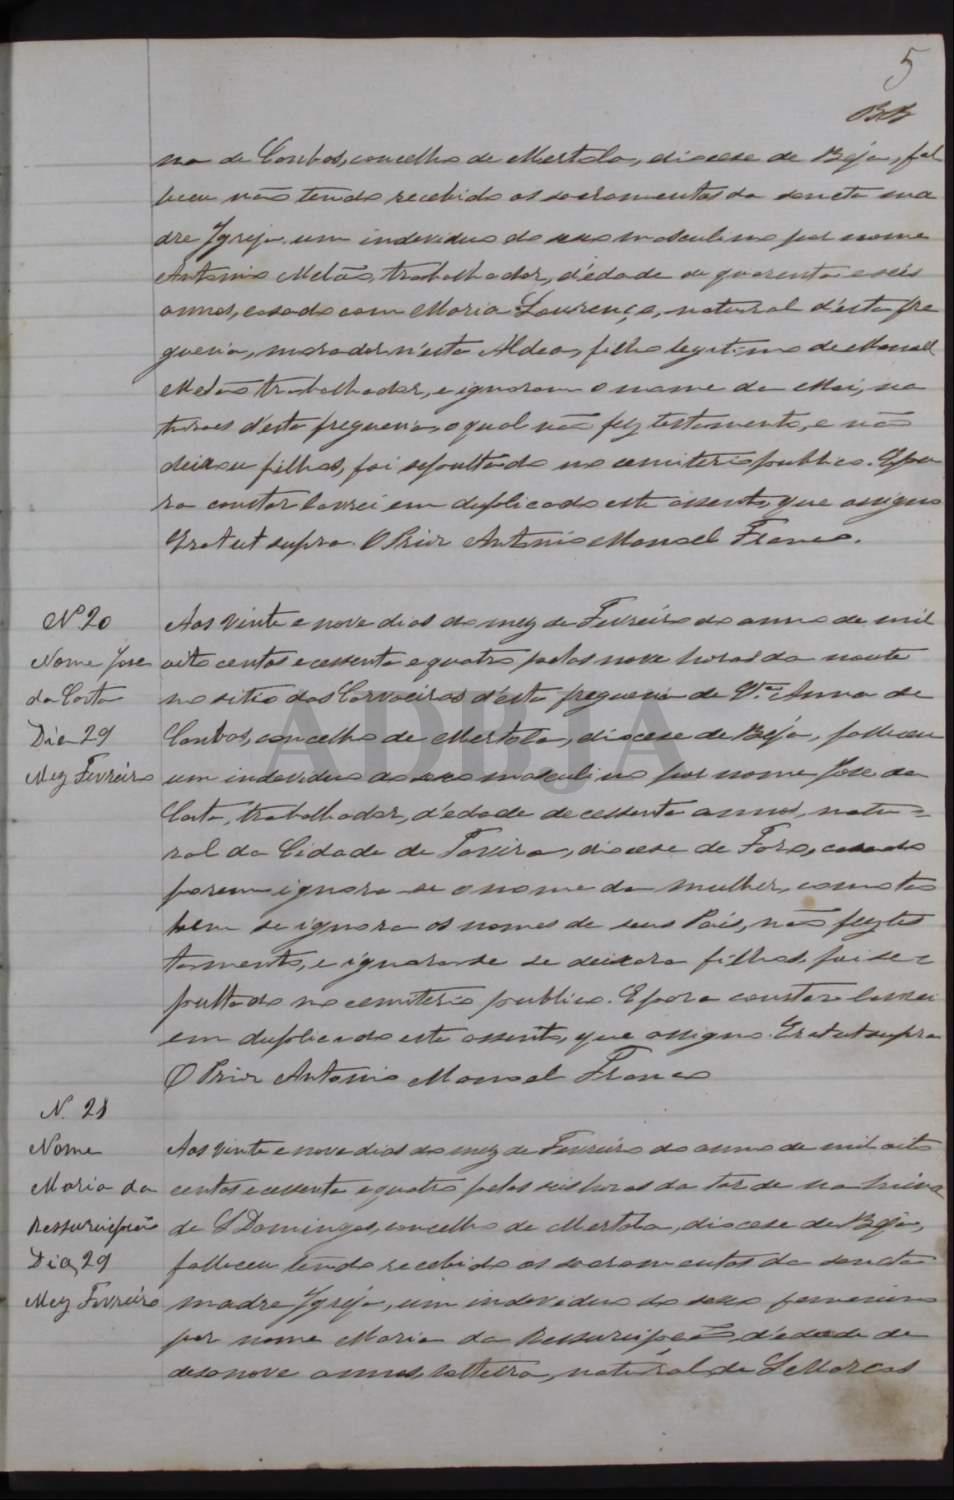 5
na de Cambas, concelho de Mertola, diocese de Beja, fal
leceu não tendo recebido os sacramentos da sancta ma
dre Igreja um individuo do sexo masculino por nome
Antonio Melão, trabalhador, d'edade de quarenta e seis
annos, casado com Maria Lourença, natural d'esta fre
guesia, morador n'esta Aldea, filho legitimo de Manoel
Melão trabalhador, e ignoram o nome da Mai, na
turaes d'esta freguesia, o qual não fez testamento, e não
deixou filhos, foi sepultado no cemiterio publico. E pa
ra constar lavrei em duplicado este assento, que assigno
Erat ut supra. O Prior Antonio Manoel Franco.
Nº 20
Nome Jose
da Costa
Dia 29
Mez Fevreiro
Aos vinte e nove dias do mez de Fevreiro do anno de mil
oito centos e cessenta e quatro pelas nove horas da noute
no sitio dos Corvoeiros d'esta freguesia de Anna de
Cambas, concelho de Mertola, diocese de Beja, falleceu
um individuo do sexo masculino por nome Jose da
Costa, trabalhador, d'edade de cessenta annos, natu=
ral da Cidade de Tavira, diocese de Faro, casado
porem ignora-se o nome da mulher, como ta
bem se ignora os nomes de seus Pais, não fez tes
tamento, e ignora-se se deixara filhos, foi se=
pultado no cemiterio publico. E para constar lavrei
em duplicado este assento, que assigno. Erat ut supra
O Prior Antonio Manoel Franco
N. 21
Nome
Maria da
Ressurreição
Dia 29
Mez Fevreiro
Aos vinte e nove dias do mez de Fevreiro do anno de mil oito
centos e cessenta e quatro pelas seis horas da tarde na Mina
de S Domingos, concelho de Mertola, diocese de Beja,
falleceu tendo recebido os sacramentos da sancta
madre Igreja, um individuo do sexo femenino
por nome Maria da Ressurreição, d'edade de
desanove annos, solteira, natural de S Marcos
ADBJA